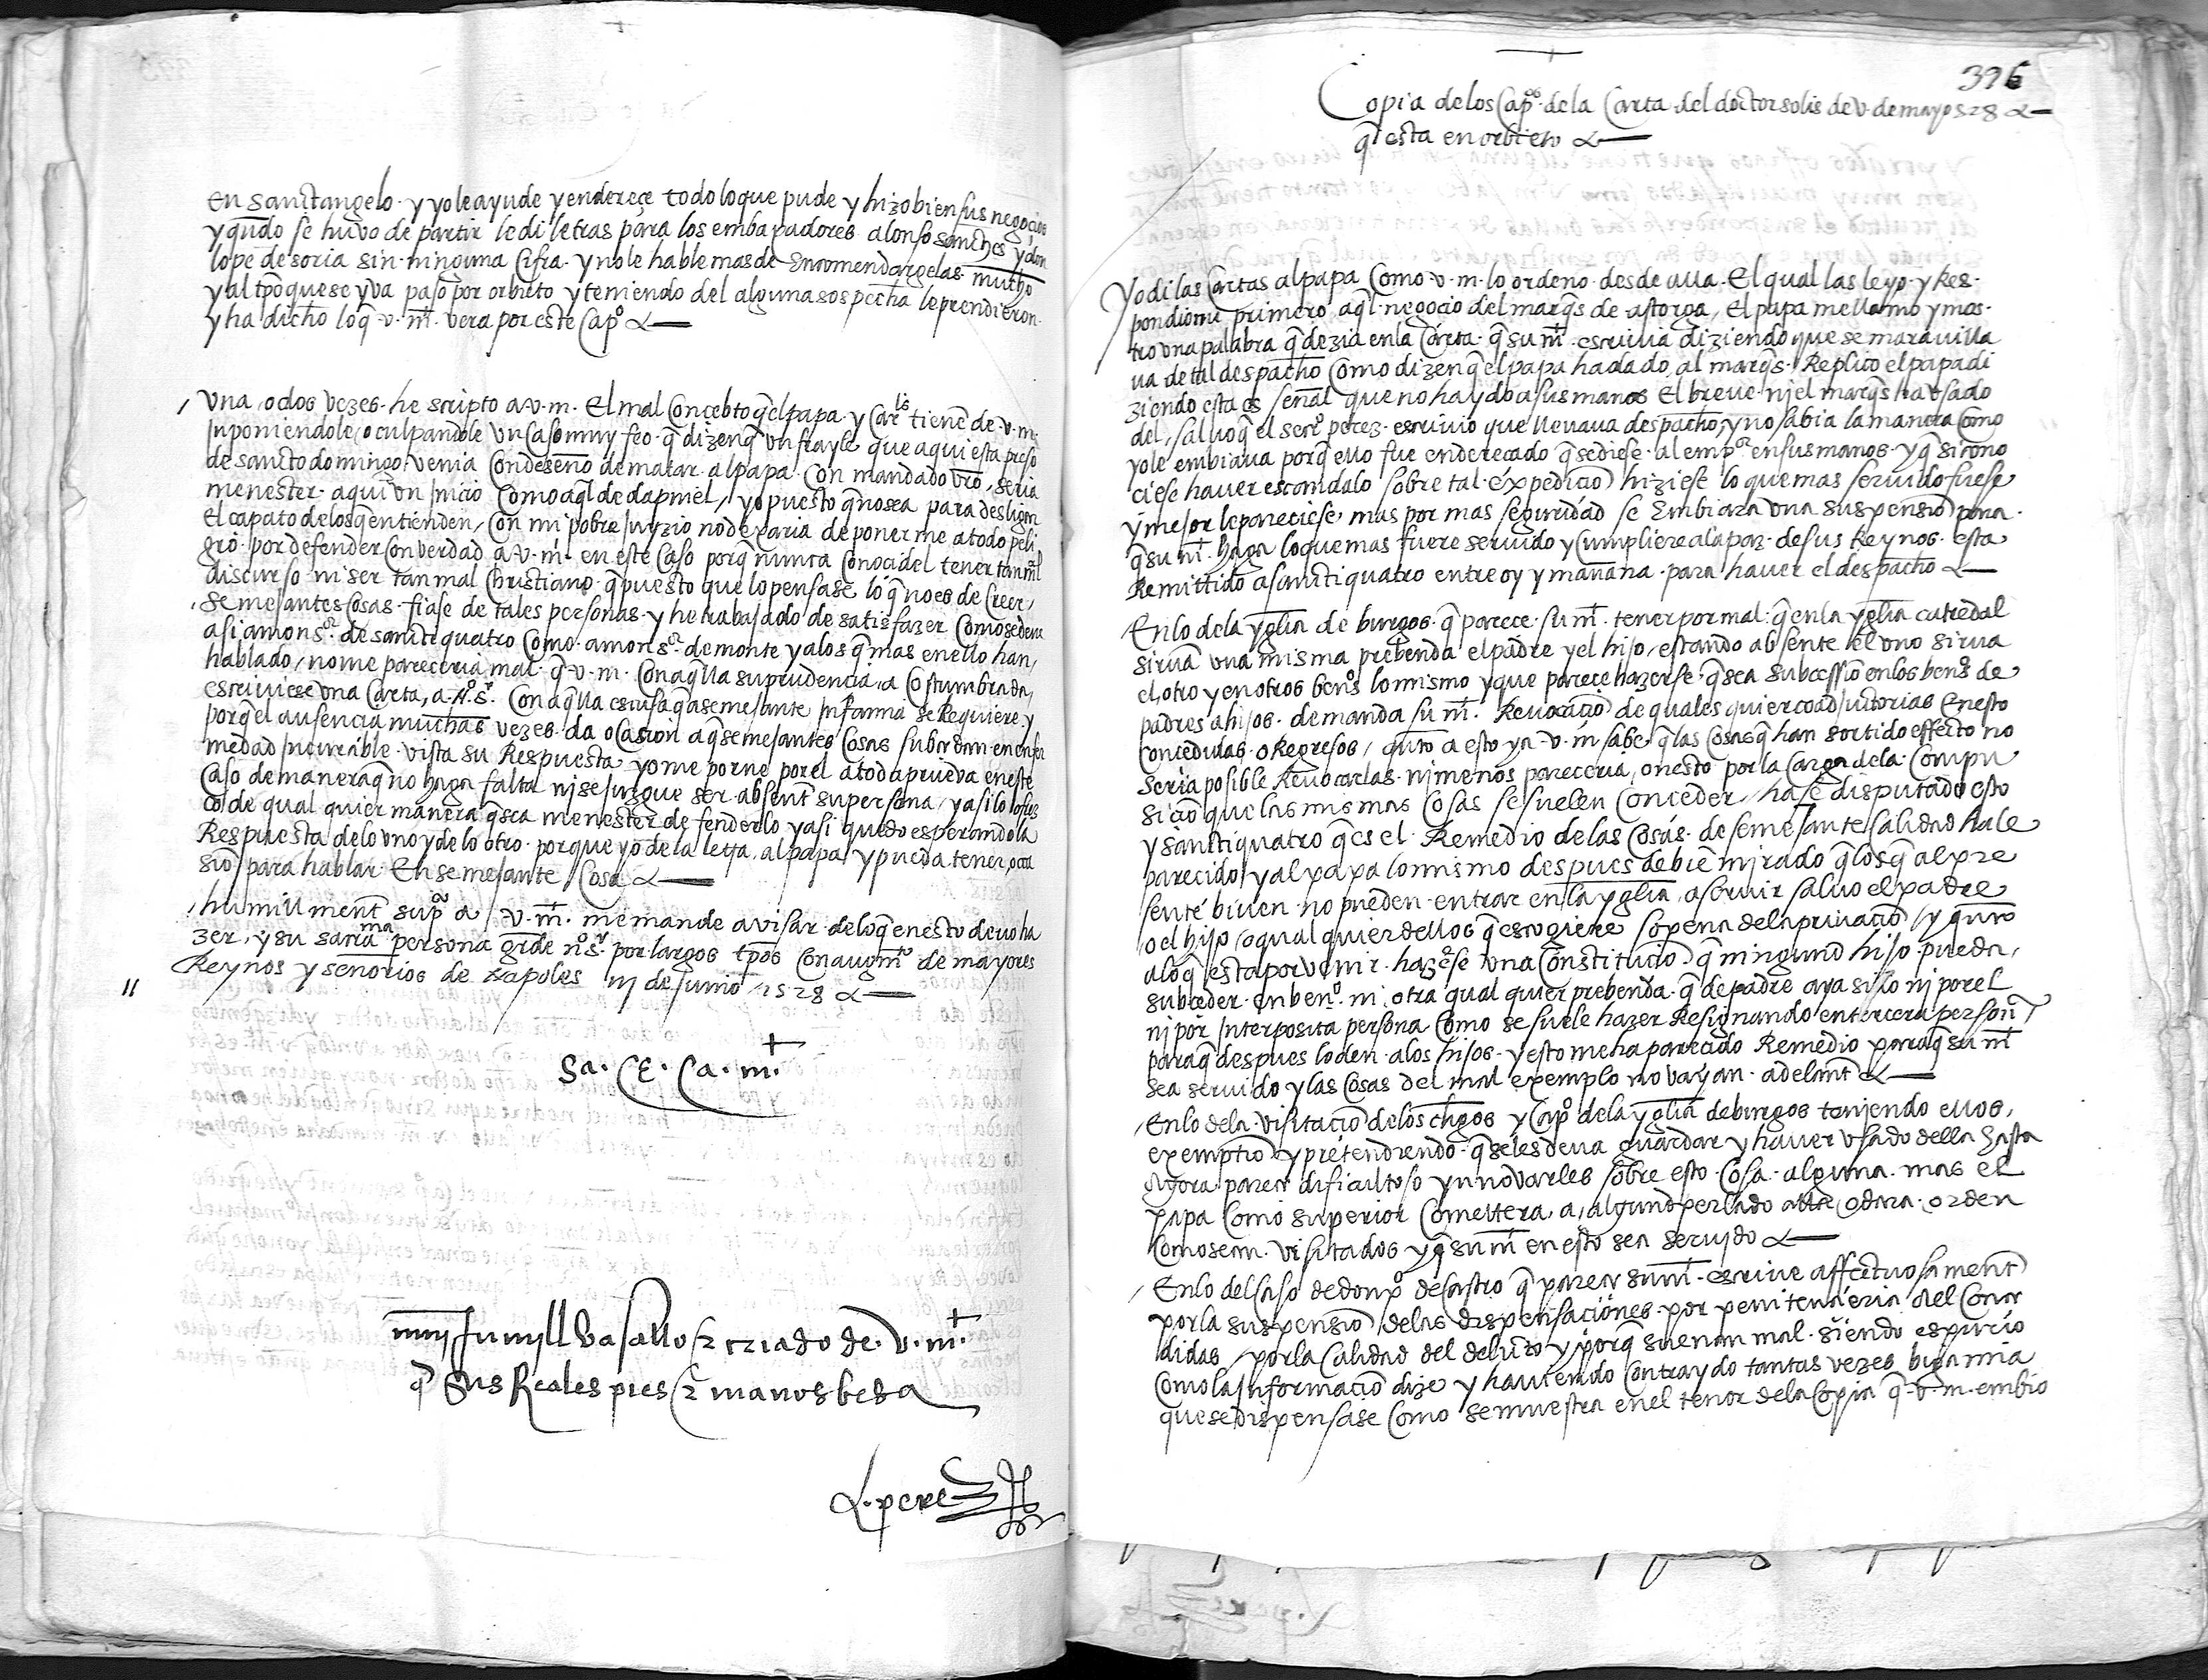 en sanctangelo · y yo le ayude y enderece todo lo que pude y hizo bien sus negocios
y qndo se huvo de partir le di letras para los embaxadores alonso sanches y don
lope de soria sin ninguna cifra · y no le hable mas de encomendargelas mucho
y al tpo que se yva paso por orbieto y teniendo del alguna sospecha le prendieron
y ha dicho lo q̄ v. mt. vera por este capo
Una o dos vezes he scripto a v. m. El mal concebto q̄ el papa y carles tiene de v. m.
inponiendole o culpandole un caso muy feo · q̄ dizen q̄ un frayle que aqui esta preso
de sancto domingo venia con deseno de matar al papa · con mandado vro, seria
menester aqui un juicio como aql de dapniel, yo puesto q̄ no sea para desligar
el capato de los q̄ entienden, con mi pobre juyzio no dexaria de ponerme a todo peli
gro por defender con verdad a v. mt. en este caso porq̄ nunca conoci del tener tan mal
discurso ni ser tan mal christiano · q̄ puesto que lo pensase lo q̄ no es de creer,
semejantes cosas fiase de tales personas · y he trabajado de satisfazer como se deve
asi a monsor de sanctiquatro como a monsor de monte y a los q̄ mas en ello han
hablado, no me pareceria mal q̄ v. m. con aqlla su prudencia acostumbrada,
escriviese una carta, a No Sr con aqlla escusa q̄ a semejante infamia se requiere y
porq̄ el ausencia muchas vezes da ocasion a q̄ semejantes cosas
medad increible · vista su respuesta yo me porne por el a toda prueva en este
caso de manera q̄ no haga falta ni se juzgue ser absent su persona,
de qual quier manera q̄ sea menester defenderlo y asi quedo esperando la
respuesta de lo uno y de lo otro · porque yo de la letra al papa y pueda tener oca
sio para hablar en semejante cosa
humillment supco a v. mt. me mande avisar de lo q̄ en esto devo ha
zer, y su sacrama persona grde no sr por largos tpos con augmto de mayores
Reynos y senorios de napoles iij de junio 1528
Sa. Ce. Ca. mt.
muy humyll vasallo y criado de. v. mt.
q̄ sus Reales pies y manos besa
L. perez
396
Copia de los Capos de la Carta del doctor solis de v. de mayo 528
q̄ esta en orbieto
Yo di las cartas al papa como v. m. lo ordeno desde alla. El qual las leyo y Res-
pondiome primero aql negocio del marqs de astorga, el papa me llamo y mos-
tro una palabra q̄ dezia en la carta q̄ su mt. escrivia diziendo que se maravilla
va de tal despacho como dizen q̄ el papa ha dado al marqs. Replico el papa di
ziendo esta es señal que no ha ydo a sus manos el breve ni el marqs ha usado
del, salvo q̄ el secro perez escrivio que llevava despacho, y no sabia la manera como
yo le embiava porq̄ ello fue enderecado q̄ se diese al empor en sus manos y q̄ si cono
ciese haver escandalo sobre tal expedicio hiziese lo que mas servido fuese
y mejor le pareciese mas por mas seguridad se embiara una suspensio para
q̄ su mt. haga lo que mas fuere servido y cumpliere a la paz de sus Reynos esta
Remittido a sanctiquatro entre oy y mañana para haver el despacho
En lo de la yglia de burgos q̄ parece su mt. tener por mal q̄ en la yglia catredal
sirva una misma prebenda el padre y el hijo, estando absente el uno sirva
el otro y en otros benos lo mismo y que parece hazerse q̄ sea subcessio en los benos de
padres a hijos demanda su mt. Revocacio de quales quier coadjutorias en esto
concedidas o Regresos, qnto a esto ya v. m. sabe q̄ las cosas q̄ han sortido effecto no
seria posible revocarlas ni menos pareceria onesto por la carga de la compu
sicio que las mismas cosas se suelen conceder, hase disputado esto
y sanctiquatro q̄ es el Remedio de las cosas de semejante calidad hale
parecido y al papa lo mismo despues de bie mirado q̄ los q̄ al pre
sente biven no pueden entrar en la yglia a servir salvo el padre
o el hijo o qual quier dellos q̄ escogiere so pena de la privacio y qnto
a lo q̄ esta por venir hazese una Constitucio q̄ ningund hijo pueda
subceder en beno ni otra qual quier prebenda q̄ de padre aya sido ni por el
ni por interposita persona como se suele hazer Resignando en tercera person
para q̄ despues lo den a los hijos y esto me ha parecido Remedio para q̄ su mt
sea servido y las cosas del mal exemplo no vayan adelant
En lo de la visitacio de los chgos y capo de la yglia de burgos teniendo ellos
exemptio y pretendiendo q̄ se les deva guardar y haver usado della hasta
agora parece dificultoso ynnovarles sobre esto cosa alguna mas el
papa como superior comettera a algund perlado alla o dara orden
como sean visitados y q̄ su mt en esto sea servido
En lo del caso de don po de castro q̄ parece su mt. escrive affectuosament
por la suspensio de las dispensaciones por penitenceria del conce
didas por la calidad del delicto y porq̄ suenan mal siendo espurio
como la informacio dize y haviendo contraydo tantas vezes bigamia
que se dispensase como se muestra en el tenor de la copia q̄ v. m. embio